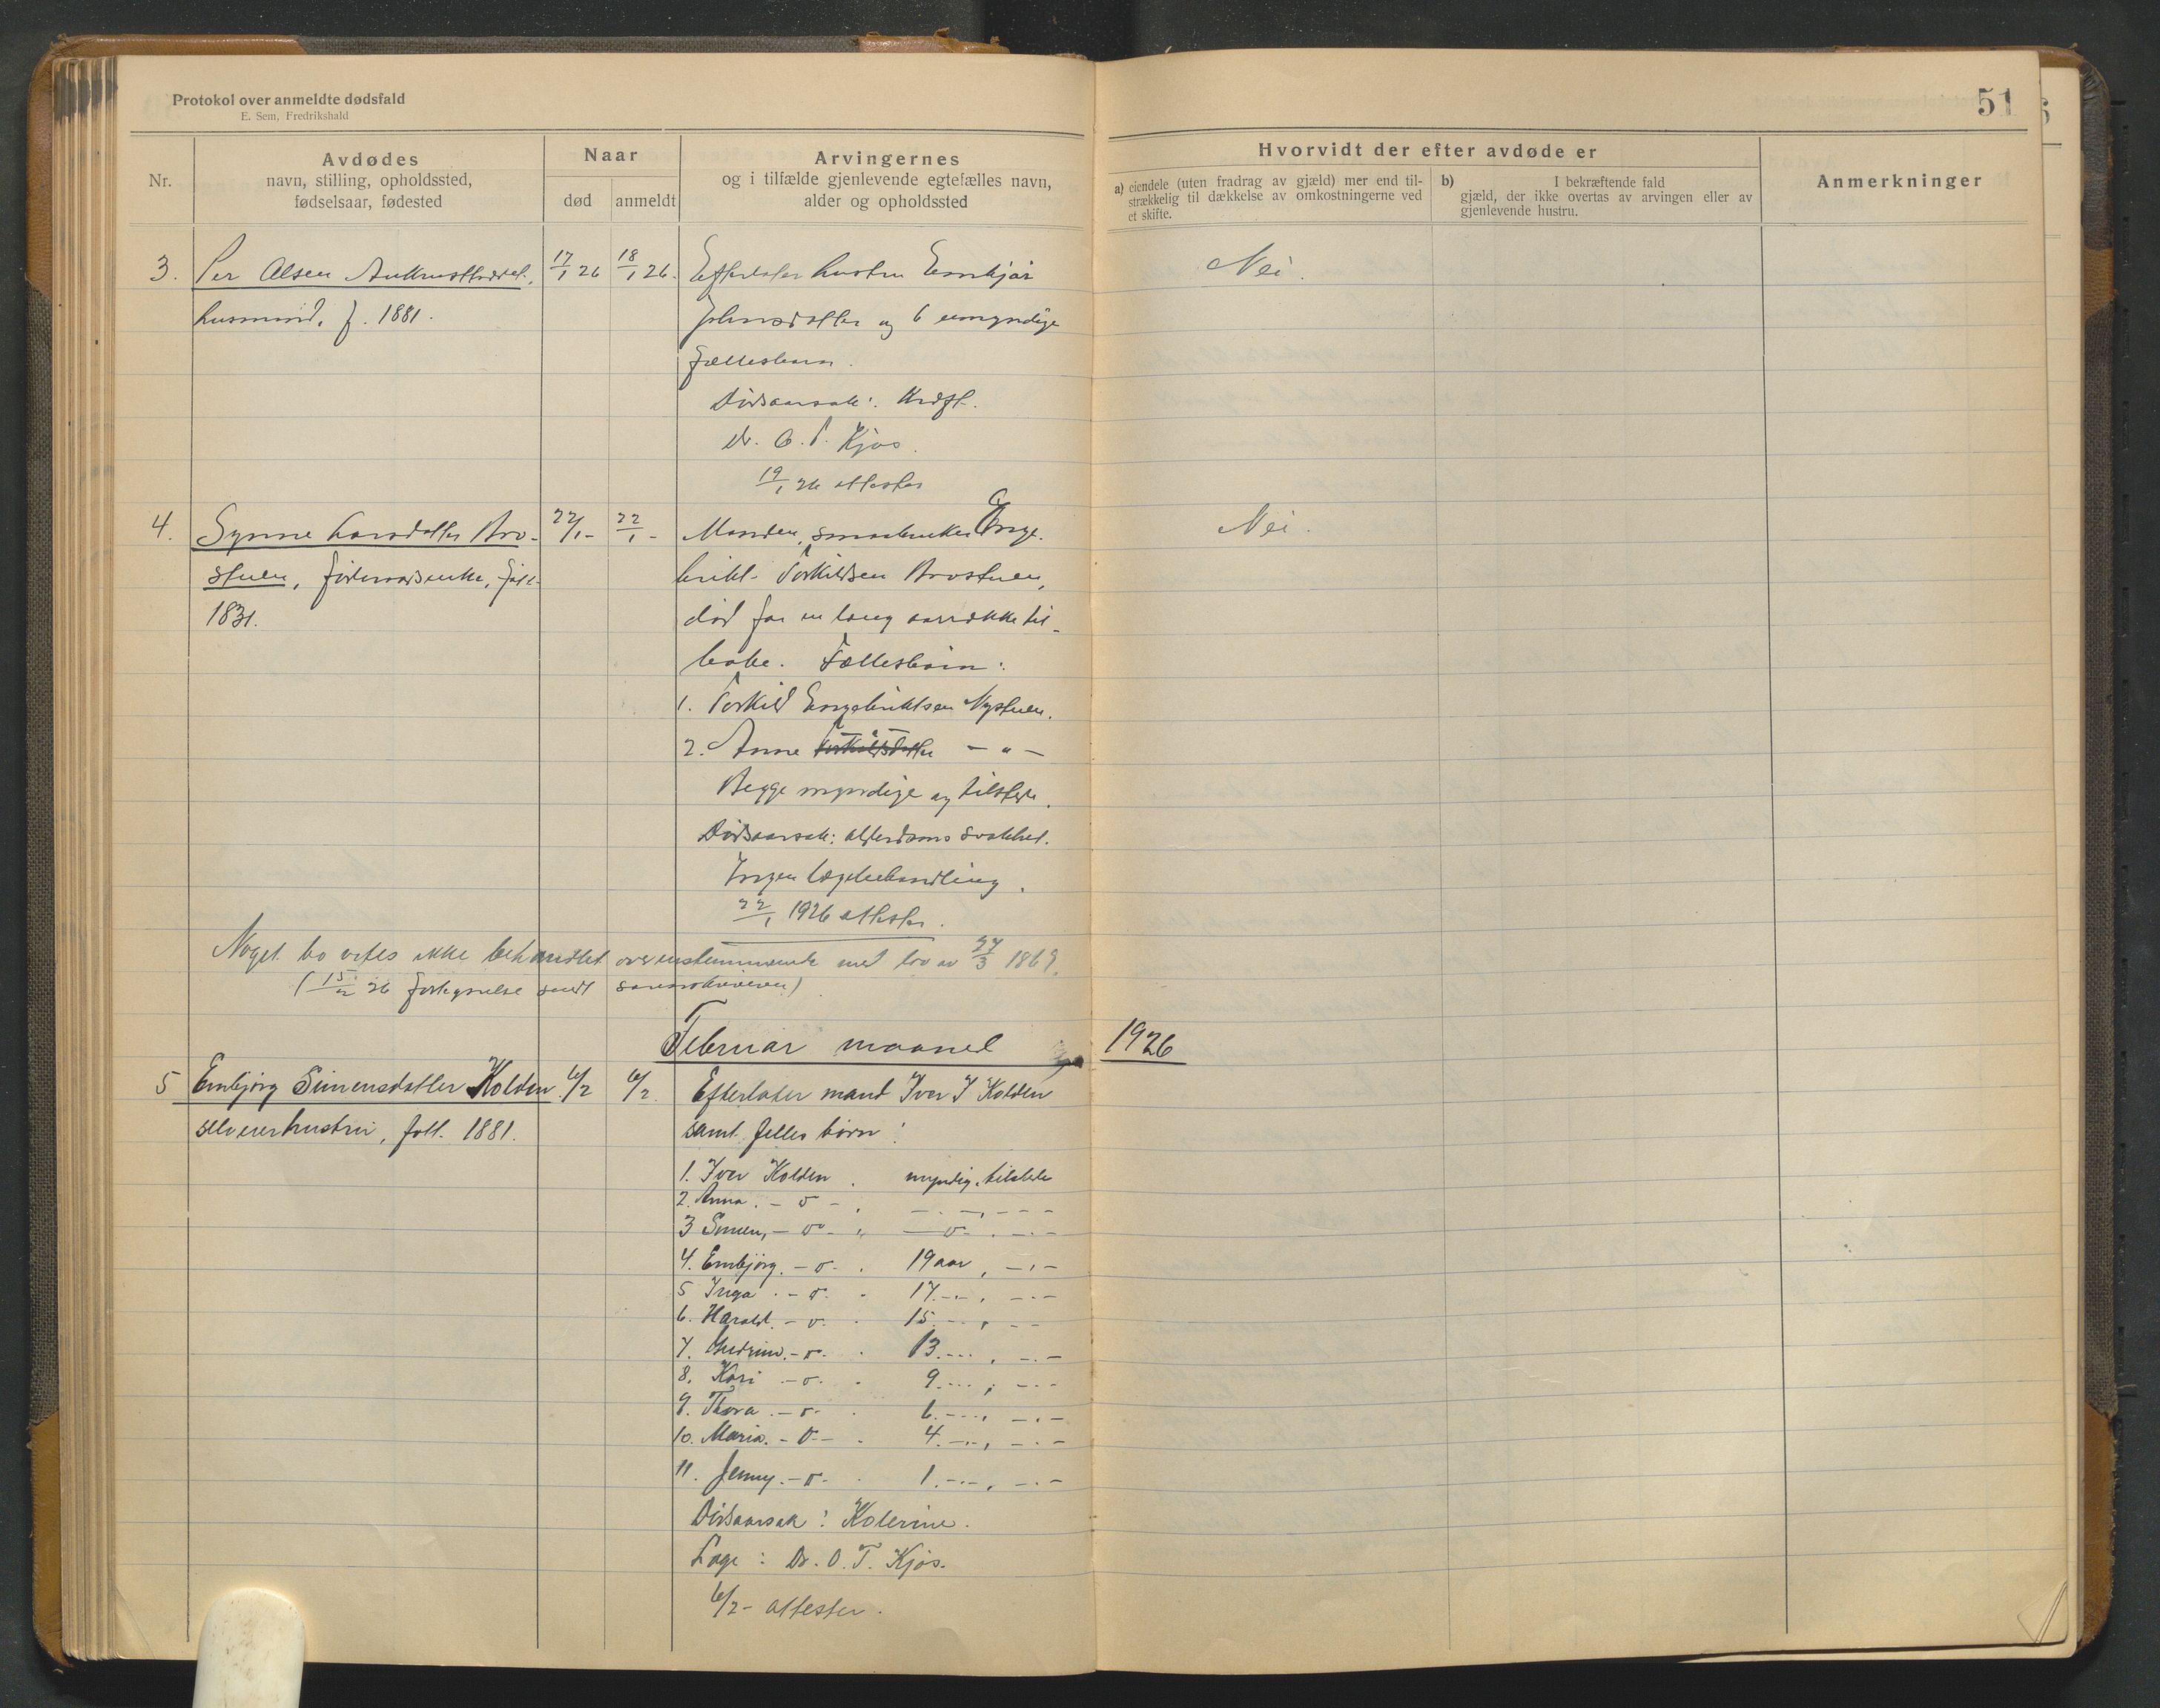 Protokol over anmeldte dødsfald
E. Sem, Fredrikshald
51
Nr.
Avdødes
navn, stilling, opholdssted,
fødselsaar, fødested
Naar
død
anmeldt
Arvingernes
og i tilfælde gjenlevende egtefælles navn,
alder og opholdssted
Hvorvidt der efter avdøde er
a) eiendele (uten fradrag av gjæld) mer end til-
strækkelig til dækkelse av omkostningerne ved
et skifte.
b) I bekræftende fald
gjæld, der ikke overtas av arvingen eller av
gjenlevende hustru.
Anmerkninger
3. Per Olsen 17/1 26 18/1 26. Efterlater hustru Embjør Nei.
husmand, f. 1881. Johnsdatter og 6 umyndige
fællesbarn.
Dødsaarsak: Kræft.
Dr. O. T. Kjos.
19/1 26 attester
4. Synne Larsdatter Bro- 22/1 - 22/1 - Manden, smaabruker Enge- Nei.
stuen, føderaadsenke, født brikt Torkildsen Brostuen,
1831. død for en lang aarrække til-
bake. Fællesbarn:
1. Torkild Engebriktsen Nystuen.
2. Anne Torkildsdatter - " -
Begge myndige og tilstede.
Dødsaarsak: alderdoms svakhet.
Ingen lægebehandling.
22/1 1926 attester.
Noget bo vites ikke behandlet overensstemmende med lov av 27/3 1869.
(15/2 26 sendt sorenskriveren)
Februar maaned 1926
5 Embjørg Simensdatter Kolden 6/2 6/2. Efterlater mand Iver I Kolden
selveierhustru, født. 1881. samt felles børn:
1. Iver Kolden . myndig, tilstede
2. Anna. - o - , - . -, - - -
3 Simen, - o - " - o - . - . -
4. Embjørg. - o - . 19 aar, - . -
5 Inga . - o - . 17. - . -, - . -
6. Harald. - o - . 15. - - , - -
7. Gudrun. - o - . 13. - . - , - . -
8. Kari . - o - . 9. - . - , - . -
9. Thora . - o - . 6. - . - , - . -
10. Maria. - o - . 4. - . -, - . -
11. Jenny. - o - . 1. - . -, - . -
Dødsaarsak: Kolerine.
Læge: Dr. O. T. Kjos.
6/2 - attester.